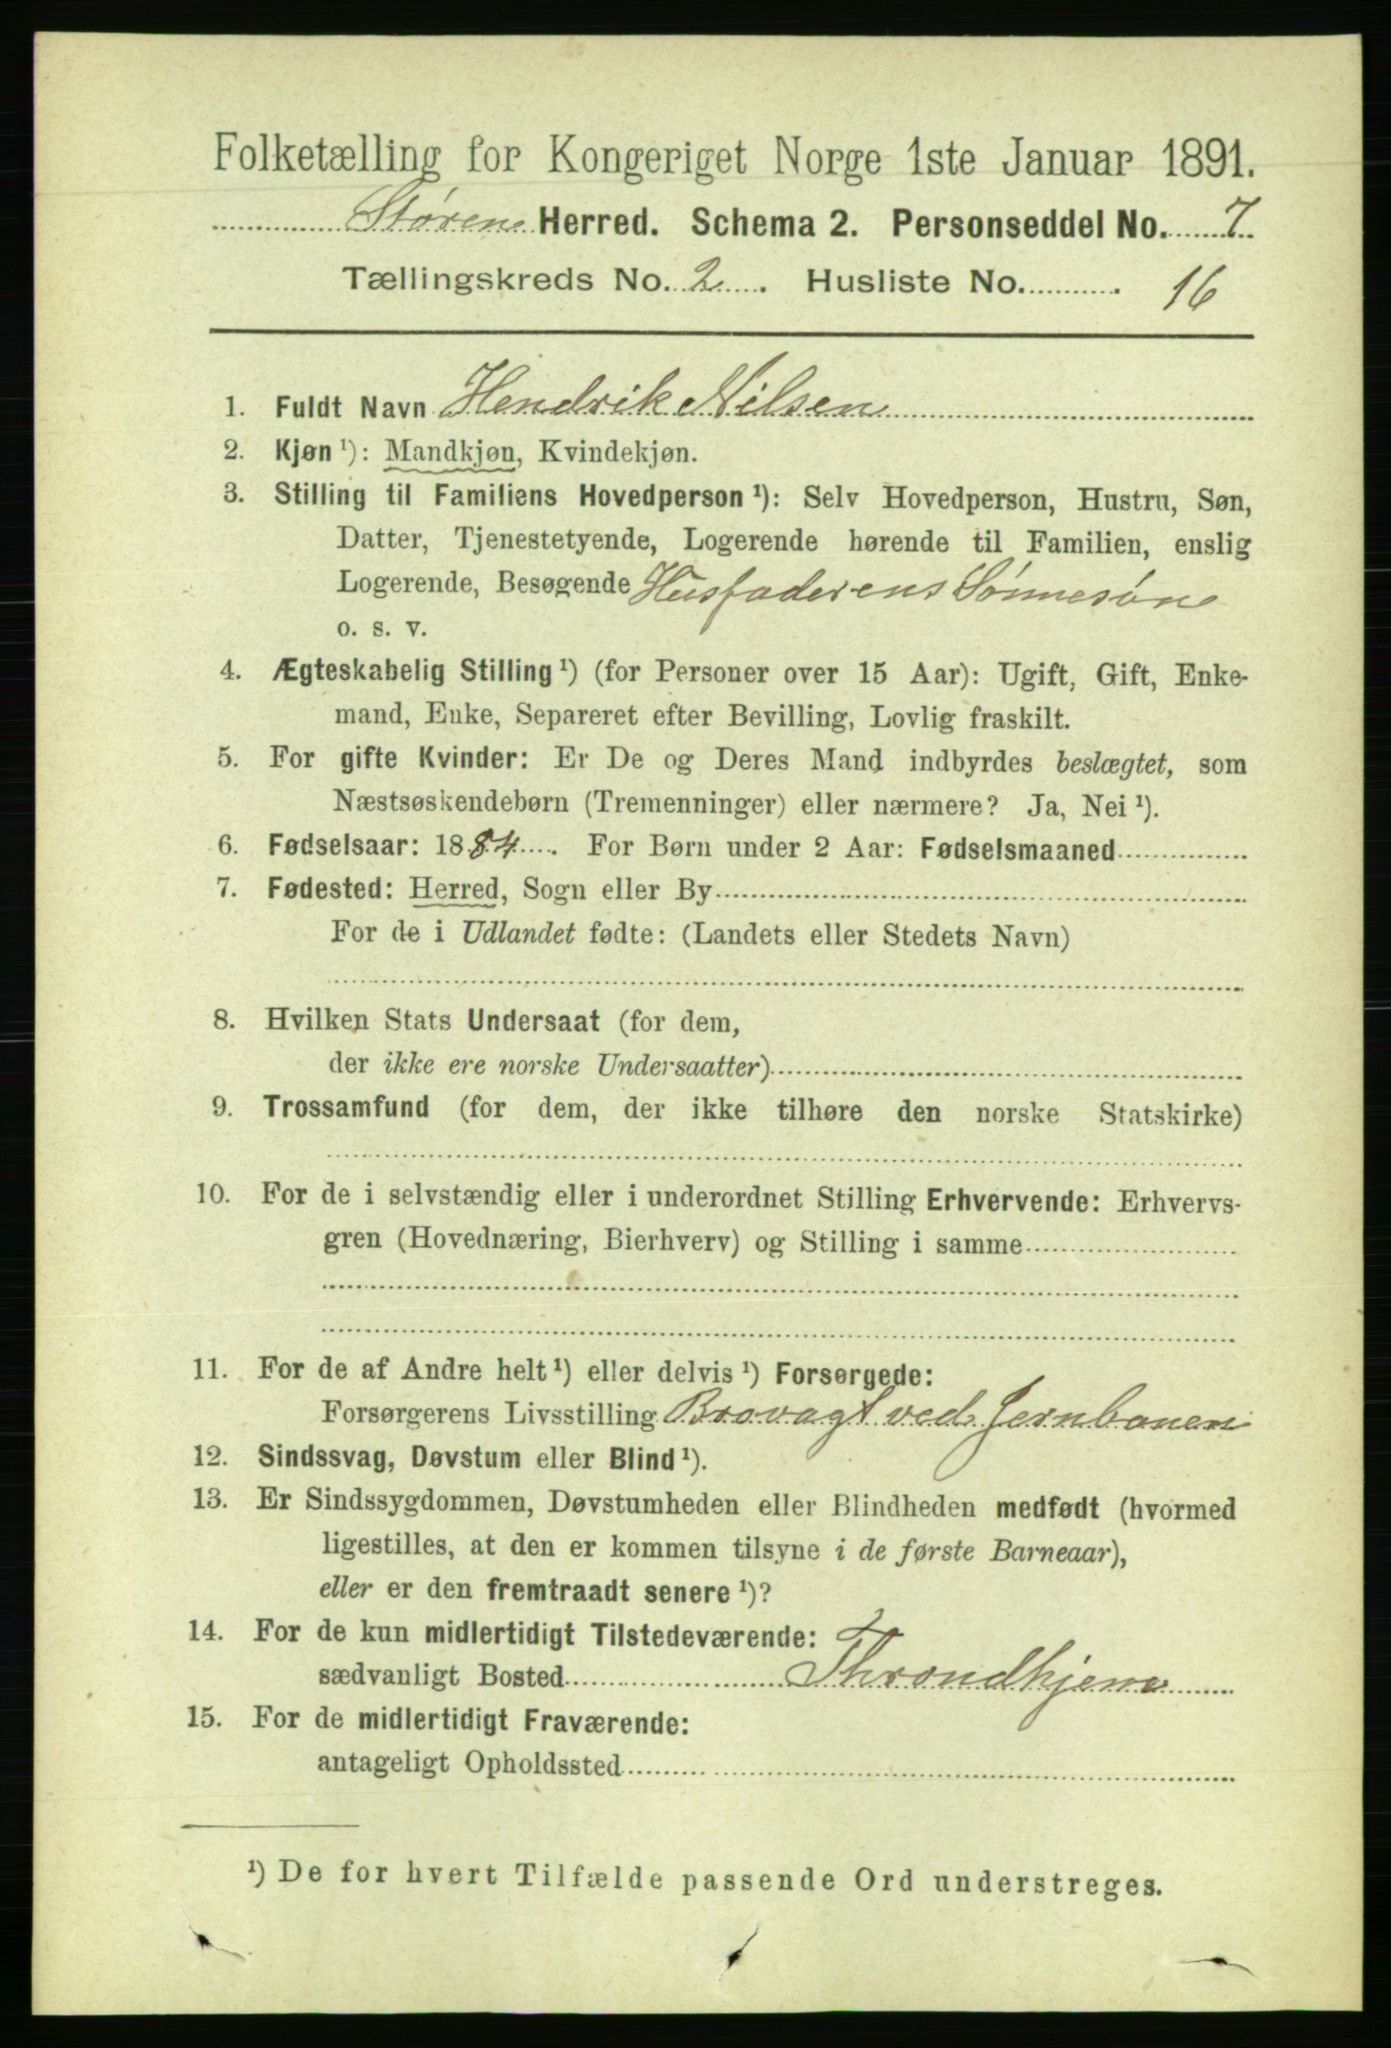 Folketælling for Kongeriget Norge 1ste Januar 1891.
Støren Herred. Schema 2. Personseddel No. 7
Tællingskreds No. 2. Husliste No. 16
1. Fuldt Navn Hendrik Nilsen
2. Kjøn ¹): Mandkjøn, Kvindekjøn.
3. Stilling til Familiens Hovedperson ¹): Selv Hovedperson, Hustru, Søn,
Datter, Tjenestetyende, Logerende hørende til Familien, enslig
Logerende, Besøgende Husfaderens Sønnesøn
o. s. v.
4. Ægteskabelig Stilling ¹) (for Personer over 15 Aar): Ugift, Gift, Enke-
mand, Enke, Separeret efter Bevilling, Lovlig fraskilt.
5. For gifte Kvinder: Er De og Deres Mand indbyrdes beslægtet, som
Næstsøskendebørn (Tremenninger) eller nærmere? Ja, Nei ¹).
6. Fødselsaar: 1884. For Børn under 2 Aar: Fødselsmaaned
7. Fødested: Herred, Sogn eller By
For de i Udlandet fødte: (Landets eller Stedets Navn)
8. Hvilken Stats Undersaat (for dem,
der ikke ere norske Undersaatter)
9. Trossamfund (for dem, der ikke tilhøre den norske Statskirke)
10. For de i selvstændig eller i underordnet Stilling Erhvervende: Erhvervs-
gren (Hovednæring, Bierhverv) og Stilling i samme
11. For de af Andre helt ¹) eller delvis ¹) Forsørgede:
Forsørgerens Livsstilling Brovagt ved Jernbanen
12. Sindssvag, Døvstum eller Blind ¹).
13. Er Sindssygdommen, Døvstumheden eller Blindheden medfødt (hvormed
ligestilles, at den er kommen tilsyne i de første Barneaar),
eller er den fremtraadt senere ¹)?
14. For de kun midlertidigt Tilstedeværende:
sædvanligt Bosted Throndhjem
15. For de midlertidigt Fraværende:
antageligt Opholdssted
¹) De for hvert Tilfælde passende Ord understreges.